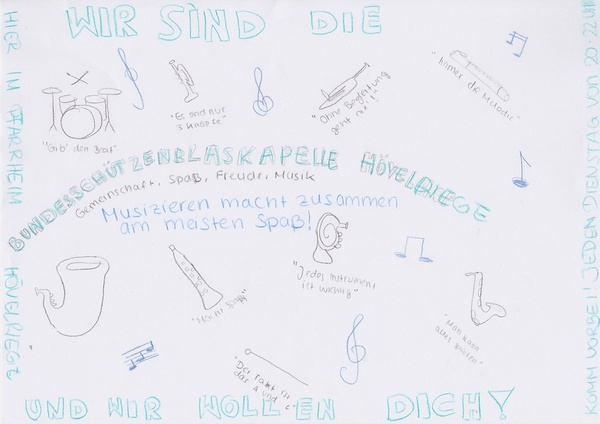 WIR SIND DIE
HIER IM PFARRHEIM HÖVELRIEGE
"Gib' den Beat"
"Es sind nur
3 Knöpfe"
"Ohne Begleitung
geht nix!"
"Immer die Melodie"
BUNDESSCHÜTZENBLASKAPELLE HÖVELRIEGE
Gemeinschaft, Spaß, Freude, Musik
Musizieren macht zusammen
am meisten Spaß!
"Macht Spaß"
"Jedes Instrument
ist wichtig"
"Man kann
alles spielen"
"Der Takt ist
das A und O"
UND WIR WOLLEN DICH!
KOMM VORBEI! JEDEN DIENSTAG VON 20-22 UHR